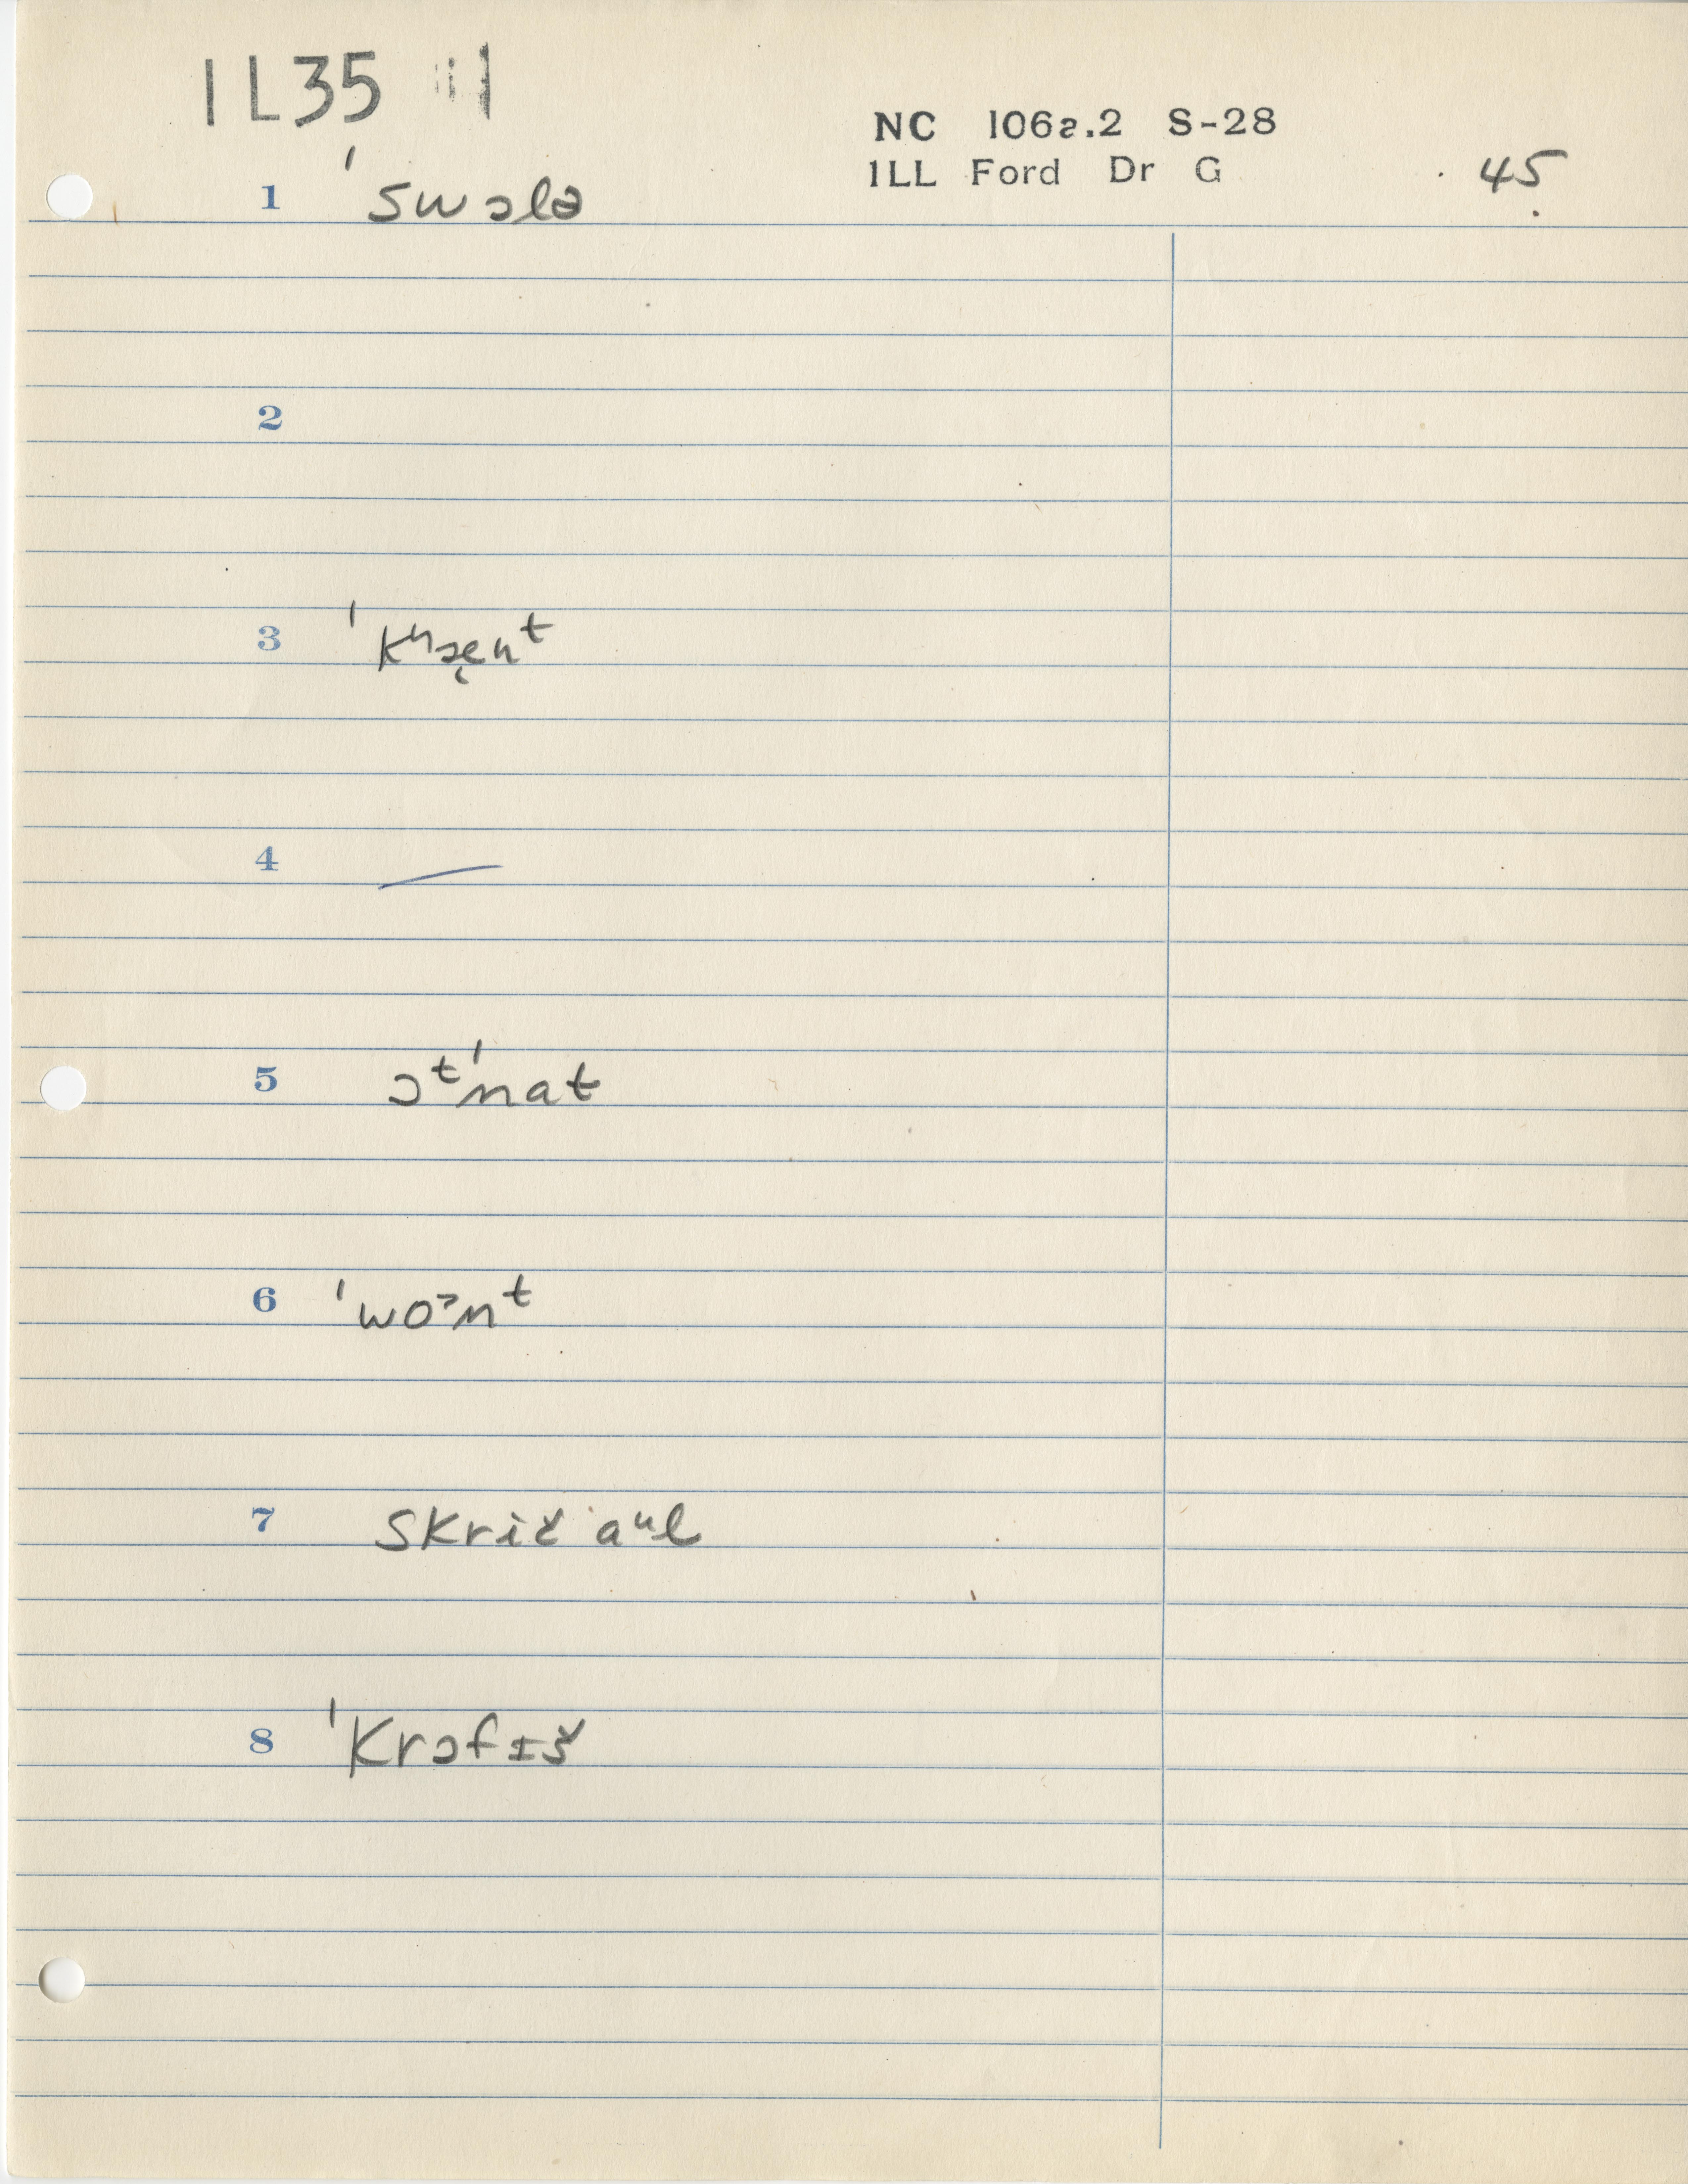 1L35
NC 106a.2 S-28
1LL Ford Dr G
45
1 ˈswɔlə
2
3
4 —
5 ɔᵗˈnat
6 ˈwoˀnᵗ
7 skrič aᵘl
8 ˈkrɔfɪš